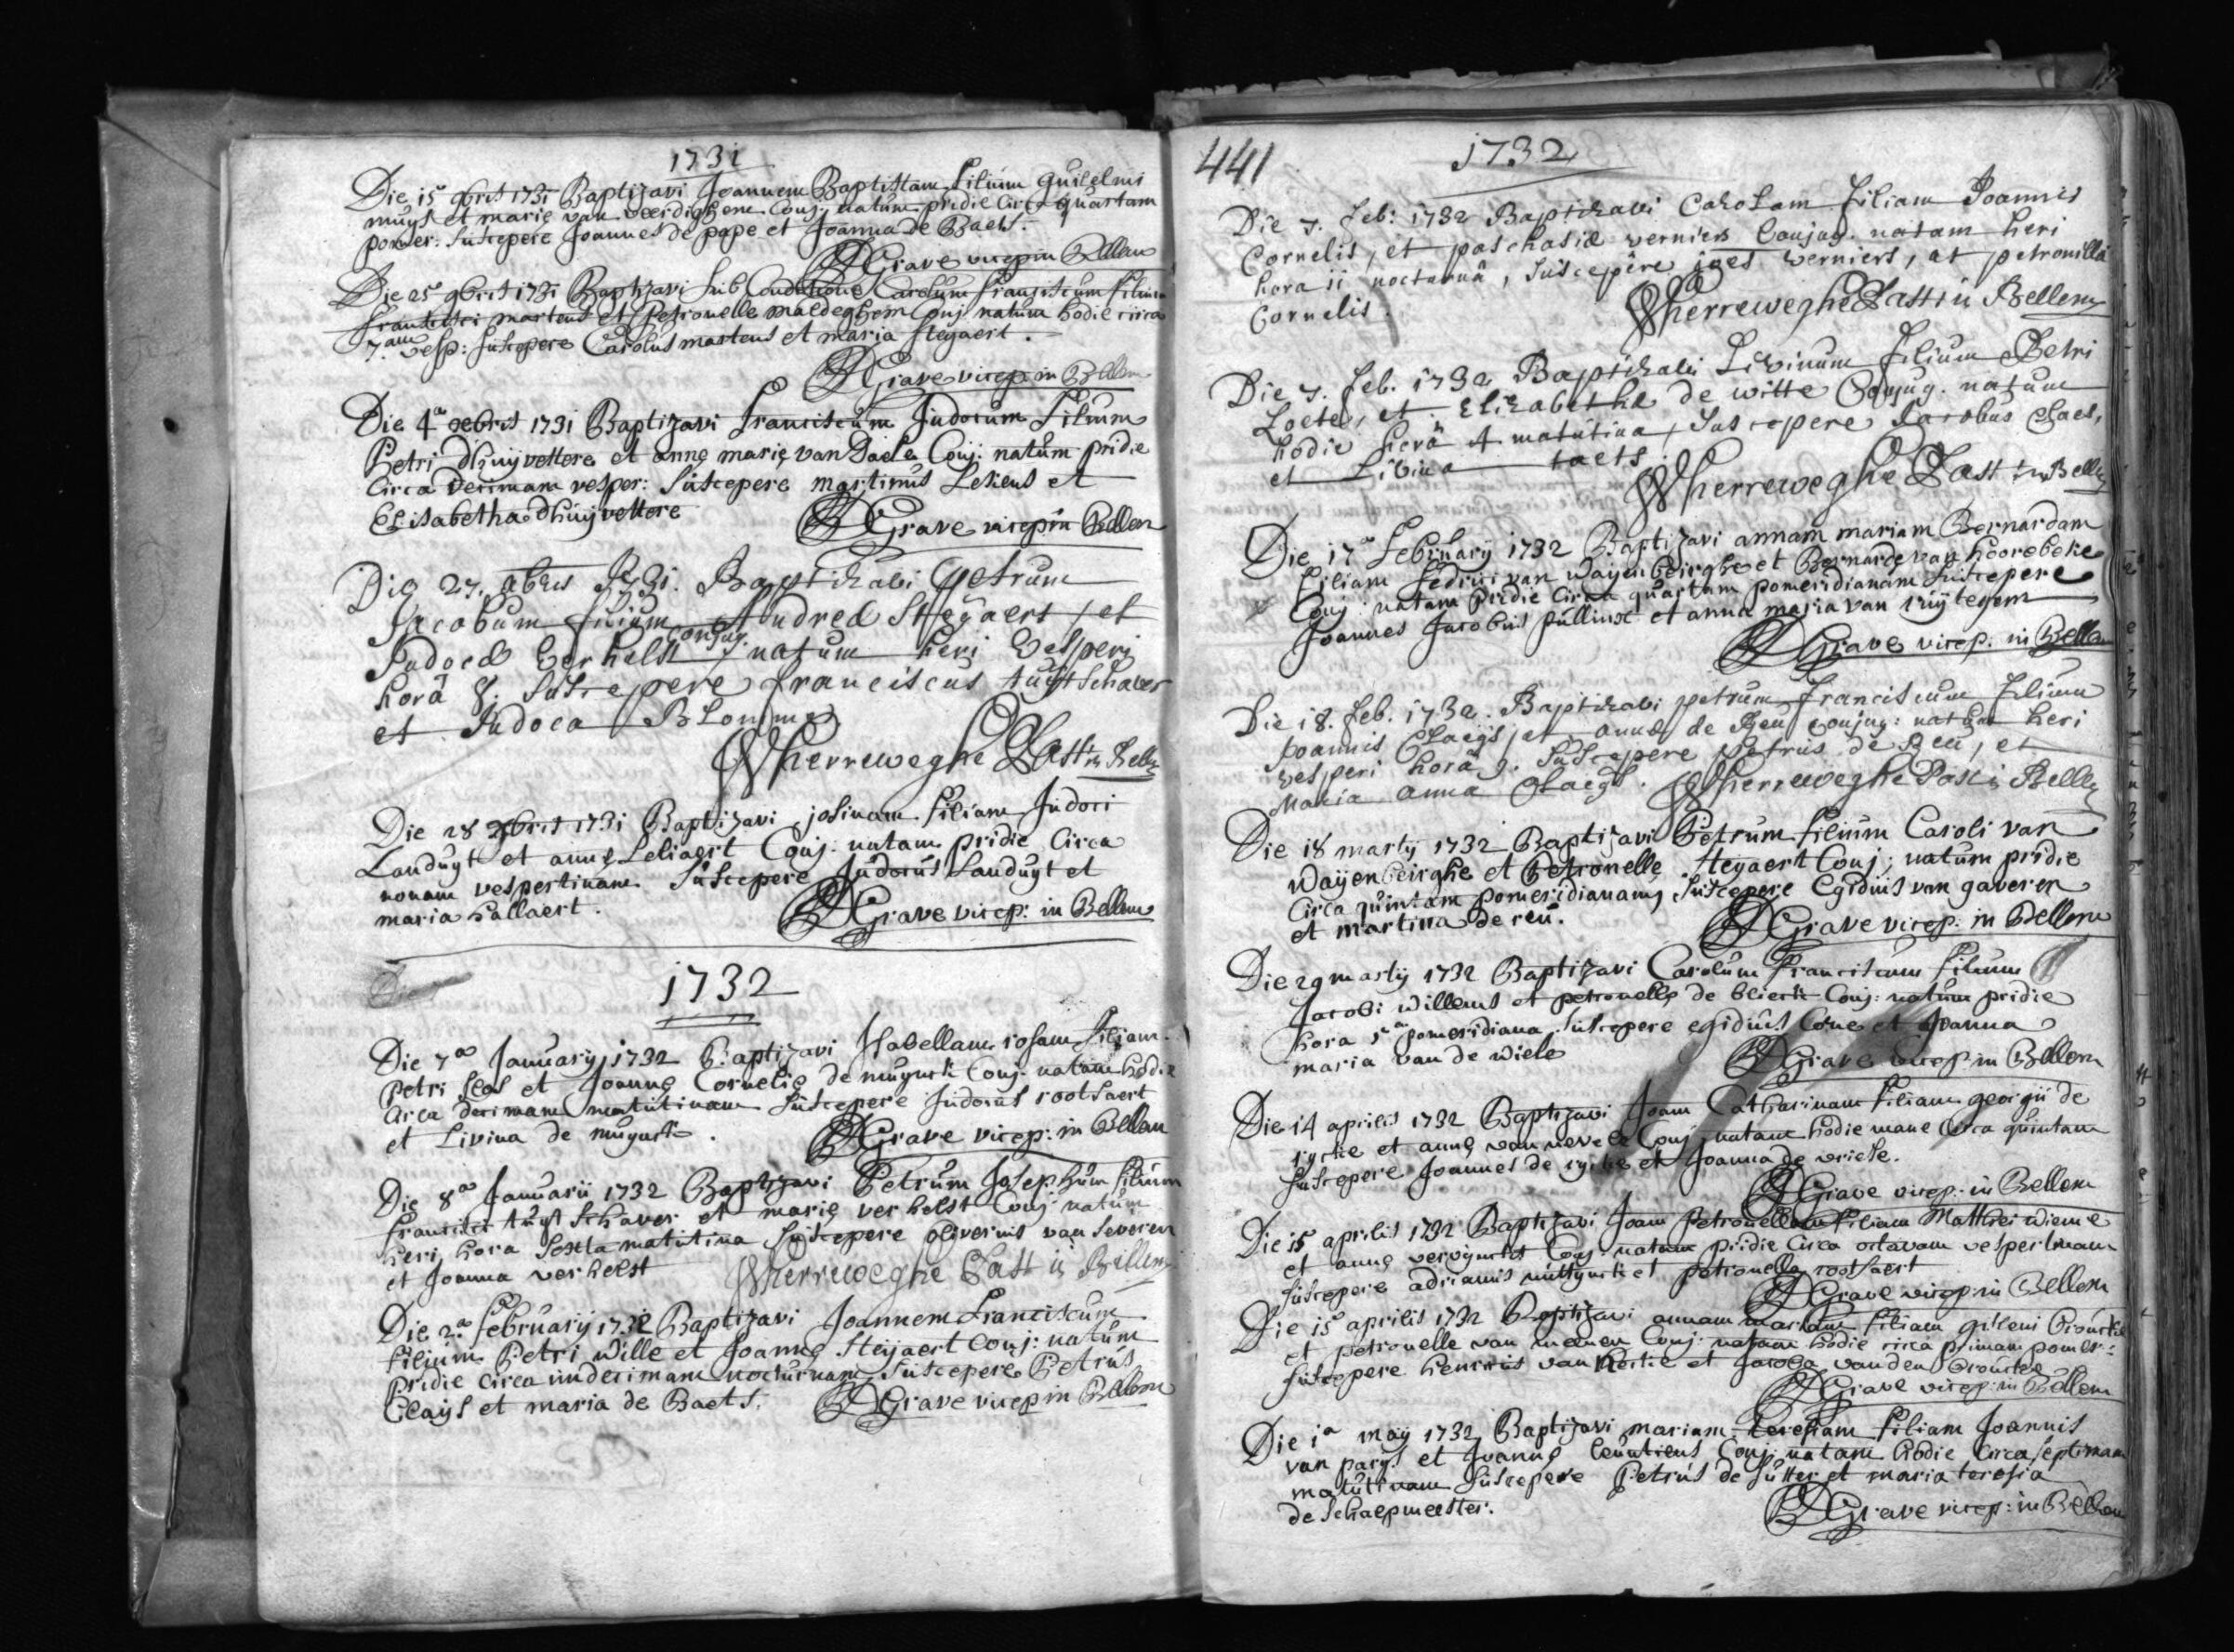 1731
Die 15 9bris 1731 Baptizavi Joannem Baptistam filium guilelmi
muys et marię van veerdighem Conj: natum pridie Circa quartam
pomer: suscepere Joannes de pape et Joanna de Baets.
DGrave vicep in Bellem
Die 25 9bris 1731 Baptizavi sub Conditione Carolum franciscum filium
francisci martens et Petronelle maldeghem Conj natum hodie circa
7.am vesp: suscepere Carolus martens et maria stegaert.
DGrave vicep in Bellem
Die 4a xebris 1731 Baptizavi franciscum Judocum filium
Petri dhuyvettere et annę marię van Daele Conj: natum pridie
Circa decimam vesper: suscepere martinus Lekens et
Elisabetha dhuyvettere
DGrave vicep in Bellem
Die 27. xbris 1731. Baptizavi petrum
Jacobum filium Andreæ Steyaert, et
Judocæ verhelst Conjug. natum heri vesperi
horâ 8. suscepere franciscus tuytschaver
et Judoca Blomme
Vherreweghe Past in Bellem
Die 28 xbris 1731 Baptizavi josinam filiam Judoci
Landuyt et annę Leliaert Conj: natam pridie Circa
nonam vespertinam suscepere Judocus Landuyt et
maria hallaert.
DGrave vicep: in Bellem
1732
Die 7a January 1732 Baptizavi Isabellam rosam filiam
Petri Seys et Joannę Cornelię de muynck Conj: natam hodie
Circa decimam matutinam suscepere Judocus rootsaert
et Livina de muynck.
DGrave vicep: in Bellem
Die 8a Januarii 1732 Baptizavi Petrum Josephum filium
francisci tuytschaver et marię verhelst Conj natum
heri hora sexta matutina suscepere oliverius van severen
et Joanna verhelst
Vherreweghe Past in Bellem
Die 2a february 1732 Baptizavi Joannem franciscum
filium Petri wille et Joannę Steyaert Conj: natum
pridie circa undecimam nocturnam, suscepere Petrus
Claeys et maria de Baets.
DGrave vicep in Bellem
441
1732
Die 7. feb: 1732 Baptizavi Carolam filiam Joannis
Cornelis, et paschasiæ verniers Conjug. natam heri
hora 11 nocturnâ, suscepêre joes verniers, at petronilla
Cornelis.
Vherreweghe Past in Bellem
Die 7. feb. 1732 Baptizavi Livinum filium Petri
Loete, et Elizabethæ de witte Conjug. natum
hodie horâ 4 matutina, suscepere Jacobus Claes,
et Livina taets.
Vherreweghe Past in Bellem
Die 17a february 1732 Baptizavi annam mariam Bernardam
filiam van wayenbeirghe et Bernardę van hoorebeke
Conj: natam pridie circa quartam pomeridianam suscepere
Joannes Jacobus pullinx et anna maria van ruytegem
DGrave vicep: in Bellem
Die 18. feb. 1732. Baptizavi petrum franciscum filium
Joannis Claeys, et annæ de Reu conjug: natum heri
vesperi horâ 9. suscepere Petrus de Reu, et
Maria anna Claeys.
Vherreweghe Past in Bellem
Die 18 martij 1732 Baptizavi Petrum filium Caroli van
wayenbeirghe et Petronelle steyaert Conj: natum pridie
circa quintam pomeridianam, suscepere Egidius van gaveren
et martina de reu.
DGrave vicep: in Bellem
Die 29 martij 1732 Baptizavi Carolum franciscum filium
Jacobi willems et petronelle de blieck Conj: natum pridie
hora 5a pomeridiana, suscepere egidius Cone et Joanna
maria van de wiele
DGrave vicep in Bellem
Die 14 aprilis 1732 Baptizavi Joam Catharinam filiam georgii de
rycke et annę van nevele Conj natam hodie mane Circa quintam
suscepere Joannes de rycke et Joanna de vriese.
DGrave vicep: in Bellem
Die 15 aprilis 1732 Baptizavi Joam Petronellam filiam Matthei wieme
et annę vervynckt Conj: natam pridie Circa octavam vespertinam
suscepere adrianus nuttynck et petronella rootsaert
DGrave vicep: in Bellem
Die 15 aprilis 1732 Baptizavi annam mariam filiam gisleni Croucke
et petronelle van Conj: natam hodie circa primam pomer:
suscepere henricus van hecke et Jacoba vanden Broucke
DGrave vicep: in Bellem
Die 1a maij 1732 Baptizavi mariam teresiam filiam Joannis
van parys et Joannę Conj: natam hodie Circa septimam
matutinam suscepere Petrus de sutter et maria teresia
de schaepmeester.
DGrave vicep: in Bellem